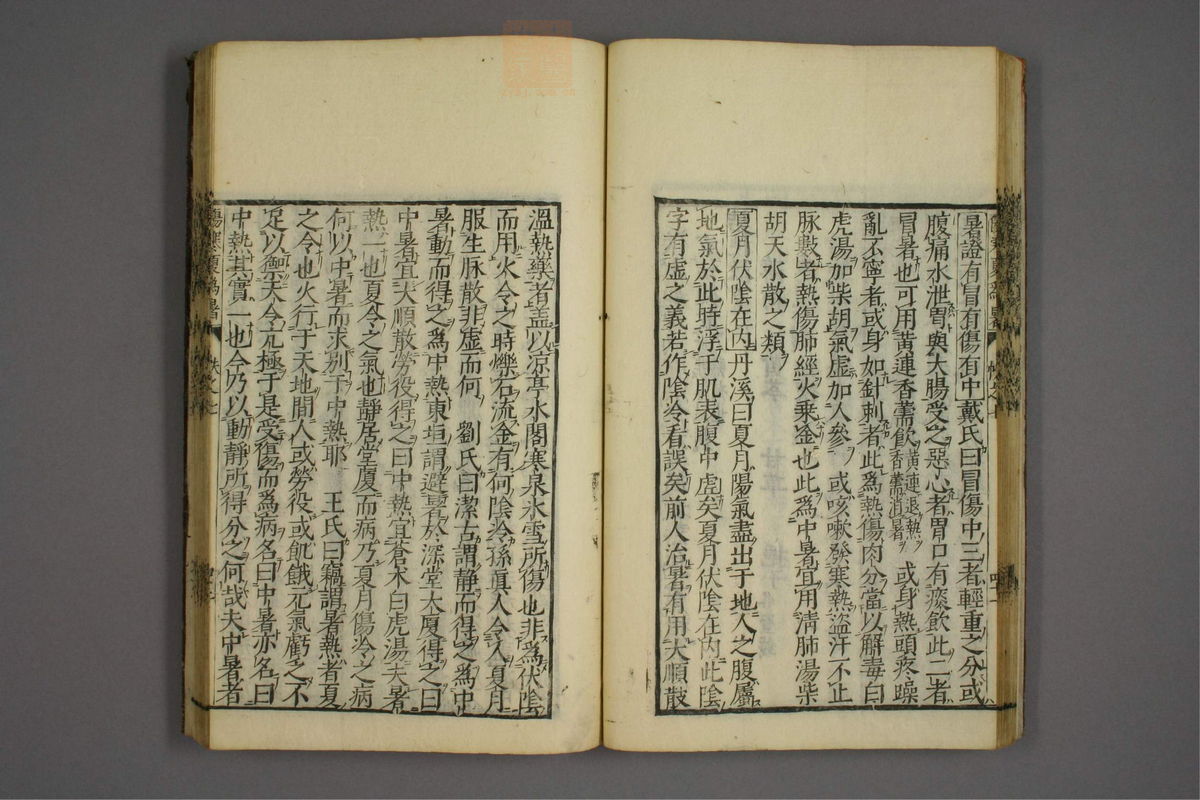 暑證有冒有傷有中戴氏曰冒傷中三者輕重之分或
腹痛水泄胃與大腸受之惡心者胃口有痰飲此二者
冒暑也可用黃連香薷飲黃連退熱香薷消暑或身熱頭疼躁
亂不寧者或身如針刺者此爲熱傷肉分當以解毒白
虎湯加柴胡氣虛加人參或咳嗽發寒熱盜汗不止
脉數者熱傷肺經火乗金也此爲中暑宜用清肺湯柴
胡天水散之類
夏月伏陰在内丹溪曰夏月陽氣盡出于地人之腹屬
地氣於此時浮于肌表腹中虛矣夏月伏陰在内此陰
字有虛之義若作陰冷看誤矣前人治暑有用大順散
溫熱藥者盖以凉亭水閣寒泉氷雪所傷也非爲伏陰
而用火令之時爍石流金有何陰冷孫眞人令人夏月
服生脉散非虛而何劉氏曰潔古謂静而得之爲中
暑動而得之爲中熱東垣謂避暑於深堂大厦得之曰
中暑宜大順散勞役得之曰中熱宜蒼术白虎湯夫暑
熱一也夏令之氣也静居堂厦而病乃夏月傷冷之病
何以中暑而求別于中熱耶王氏曰竊謂暑熱者夏
之令也火行于天地間人或勞役或飢餓元氣虧乏不
足以禦天令亢極于是受傷而爲病名曰中暑亦名曰
中熱其實一也今乃以動静所得分之何哉夫中暑者